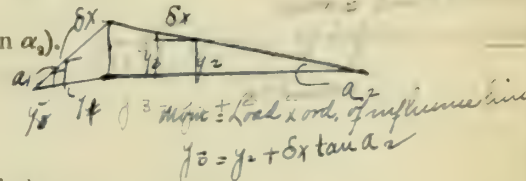 n α₂).
δx
δx
a₁
y₂
a₂
Mom = Load x ord. of influence line
y₅ = y₂ + δx tan a₂